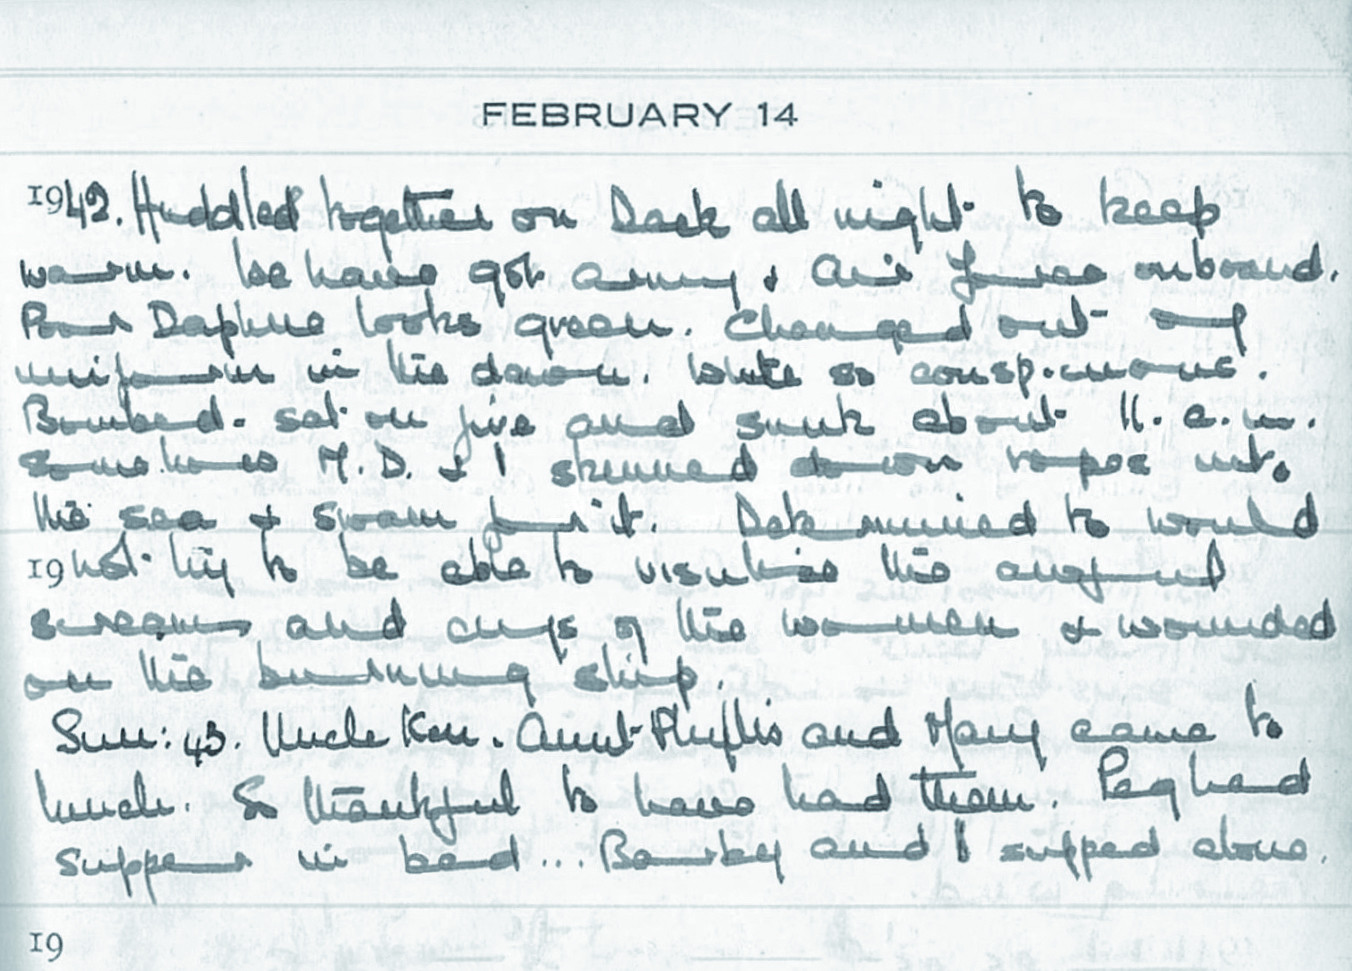 FEBRUARY 14
1942. Huddled together on Deck all night to keep
warm. We have got army & Air Force onboard.
Poor Daphne looks green. Changed out my
uniform in the dawn. White so conspicuous.
Bombed. set on fire and sunk about 11. a.m.
Somehow M.D. & I skimmed down ropes into
the sea & swam for it. Determined to would
19 not try to be able to visulise the
screams and crys of the women & wounded
on the burning ship.
Sun: 43. Uncle Ken. Aunt Phyllis and Mary came to
lunch. So thankful to have had them. Peg had
supper in bed... and I supped alone.
19